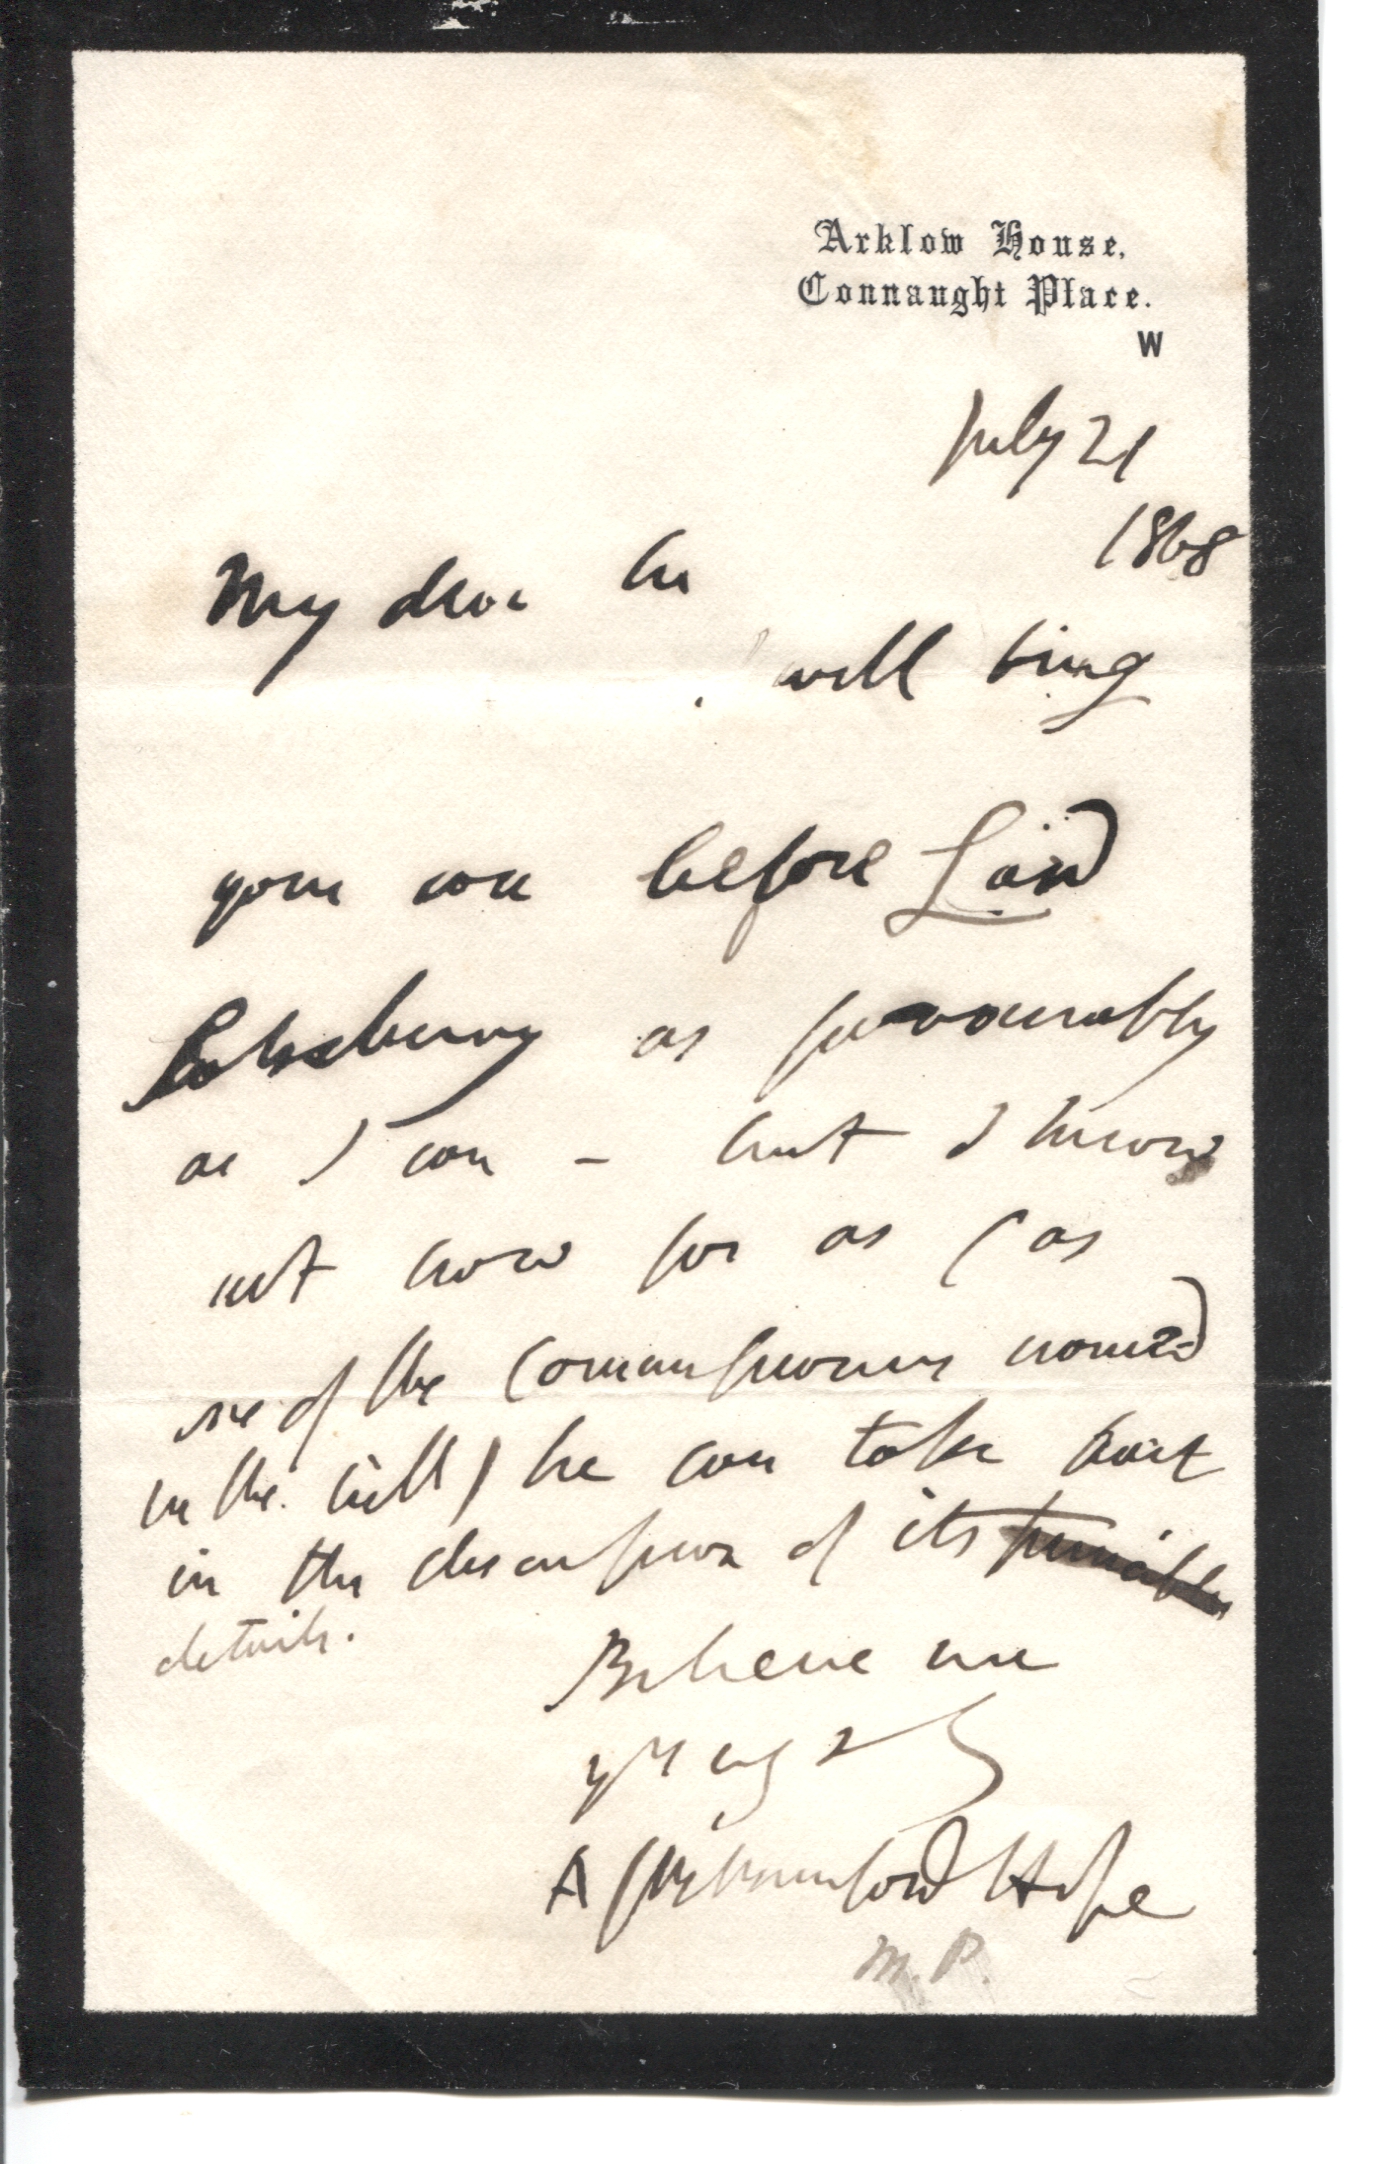 Arklow House,
Connaught Place.
W
July 21
1868
My dear Sir
I will bring
your case before Lord
Salisbury as favourably
as I can – but I know
not how far as (as
one of the Commissioners named
in the bill) he can take part
in the discussion of its
details.
Believe me
A J B Beresford Hope
M.P.